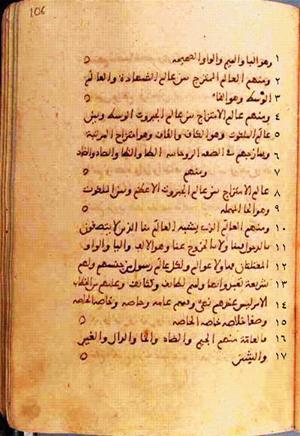 106
١ وهو البا والميم والواو الصحيحة
٢ ومنهم العالم الممتزج من عالم الشهادة والعالم
٣ الوسط وهو الفاء
٤ ومنهم عالم الامتزاج بين عالم الجبروت الوسط وبين
٥ عالم الملكوت وهو الكاف والقاف وهو امتزاج المرتبة
٦ ويمازجهم في الصفة الروحانية الطا والظا والصاد والضاد
٧ ومنهم
٨ عالم الامتزاج بين عالم الجبروت الاعظم وبين الملكوت
٩ وهو الحا المهملة
١٠ ومنهم العالم الذي يشبه العالم منا الذين لا يتصفون
١١ بالدخول فينا ولا بالخروج عنا وهو الالف واليا والواو
١٢ المعتلتان فهؤلاء عوالم ولكل عالم رسول من جنسهم ولهم
١٣ شريعة تعبدوا بها ولهم لطايف وكثايف وعليهم من الخطاب
١٤ الامر ليس عندهم نهي وفيهم عامة وخاصة وخاصة الخاصة
١٥ وصفا خلاصة خاصة الخاصة
١٦ فالعامة منهم الجيم والضاد والخا والدال والغين
١٧ والشين